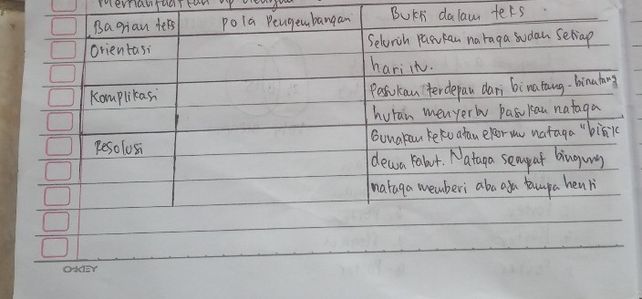 Bagian teks pola Pengembangan Bukti dalam teks
Orientasi Seluruh Pasukan nataga sudah setiap
hari itu.
Komplikasi Pasukan terdepan dari binatang-binatang
hutan menyerbu pasukan nataga
Resolusi Gunakan kekuatan ekormu nataga "bisik
dewa kabut. Nataga sempat bingung
nataga memberi aba aba tanpa henti
OKEY